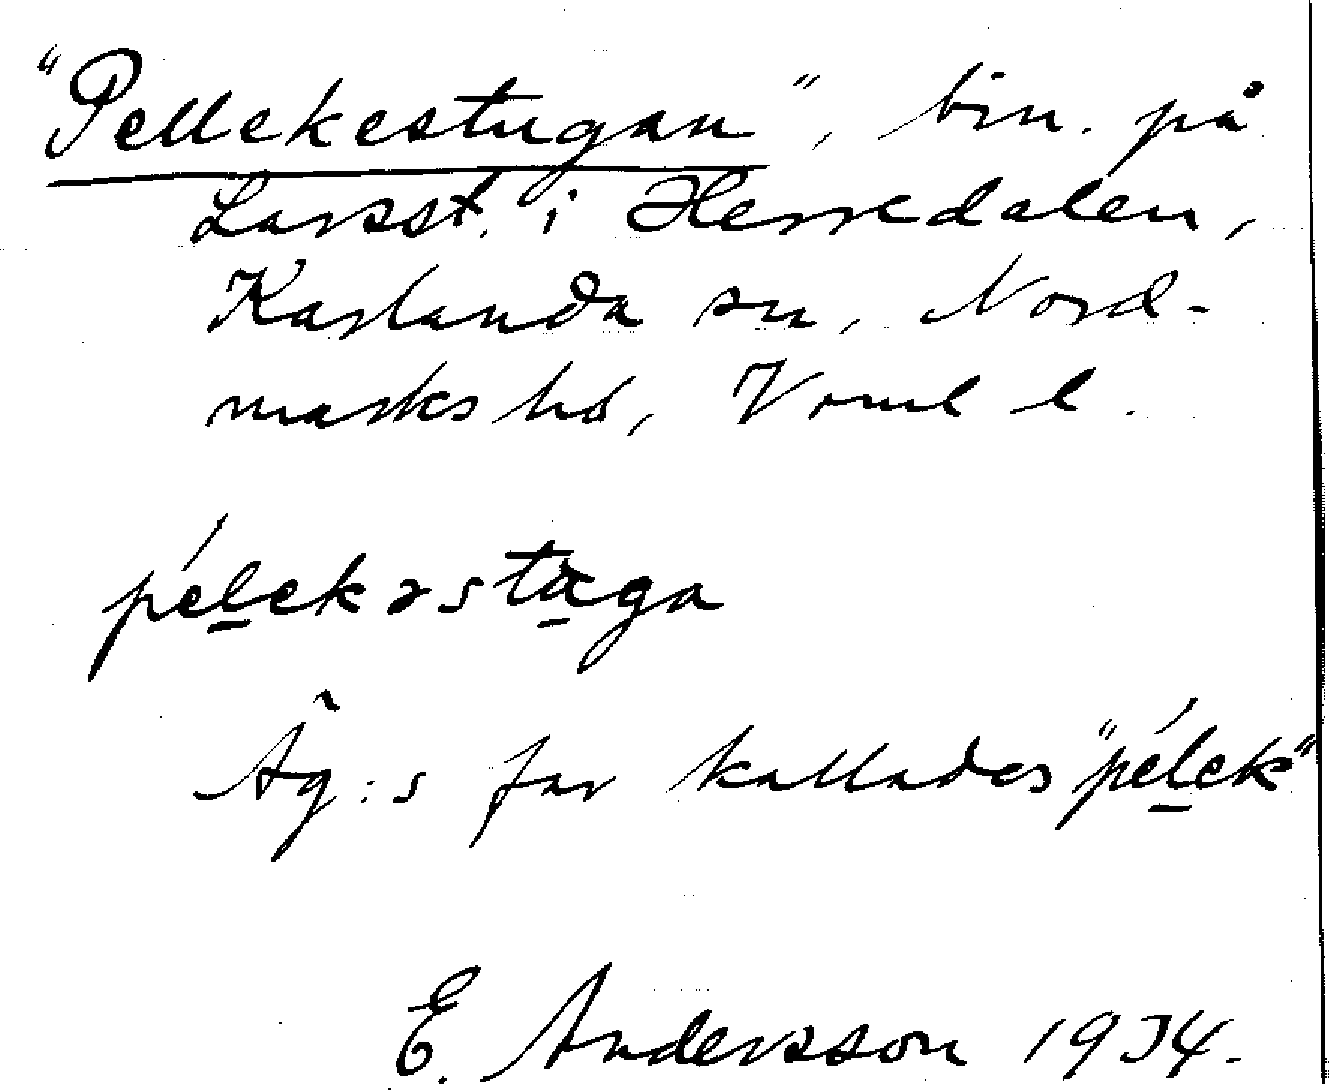 "Pellekestugan", bin. på
Larsst. i Herredalen,
Karlanda sn, Nord-
marks hd, Vrml l.
péḻekəstæ̱ga
Äg:s far kallades "péḻek"
E. Andersson 1934.